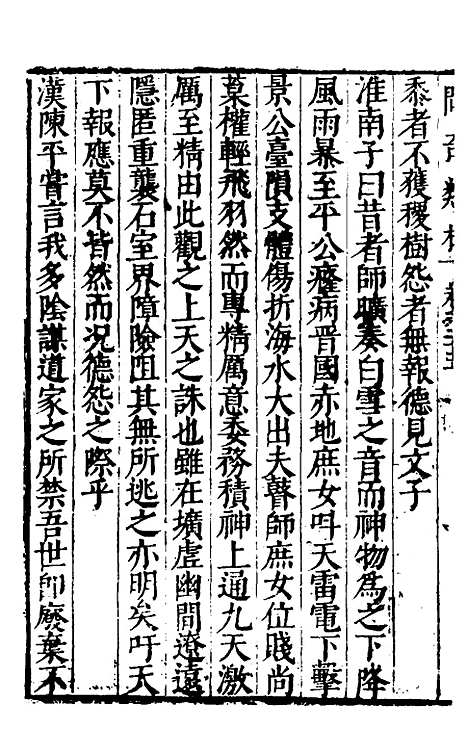 黍者不獲稷樹怨者無報德見文子
淮南子曰昔者師曠奏白雪之音而神物為之下降
風雨暴至平公癃病晋國赤地庶女呌天雷電下擊
景公臺隕支體傷折海水大出夫瞽師庶女位賤尚
葈權輕飛羽然而專精厲意委務積神上通九天激
厲至精由此觀之上天之誅也雖在壙虛幽間遼遠
隱匿重襲石室界障險阻其無所逃之亦明矣吁天
下報應莫不皆然而况德怨之際乎
漢陳平嘗言我多陰謀道家之所禁吾世即廢棄不